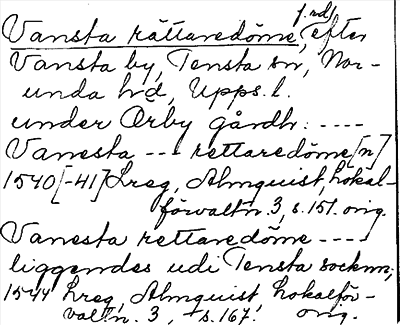 Vansta rättaredöme, f.rd, efter
Vansta by, Tensta sn, Nor-
unda hd, Upps. l.
under Ørby gårdh: ----
Vanesta --- rettaredöme[n]
1540[-41] Lreg, Almquist, Lokal-
förvaltn. 3, s. 151. orig.
Vanesta rettaredöme ----
liggendes udi Tensta socknn;
1544 Lreg, Almquist Lokalför-
valtn. 3, s. 167. orig.